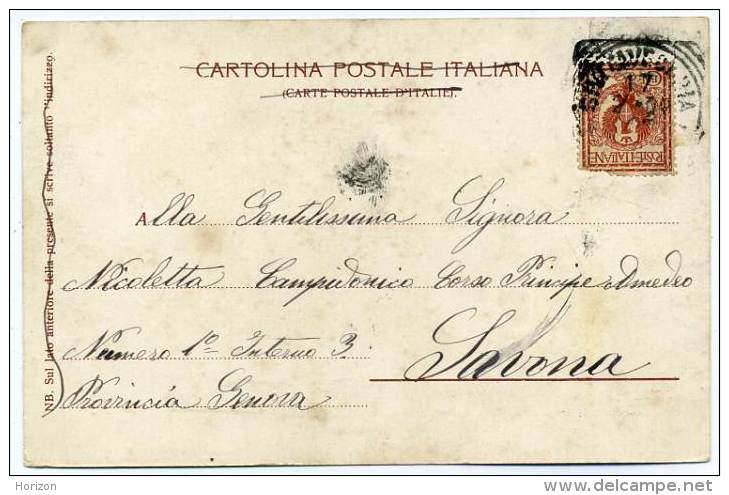 CARTOLINA POSTALE ITALIANA
(CARTE POSTALE D'ITALIE).
POSTE ITALIANE
17
Alla Gentilissima Signora
Nicoletta Campidonico Corso Principe Amedeo
Numero 1º Interno 3.
Savona
Provincia Genova
NB. Sul lato anteriore della presente si scrive soltanto l'indirizzo.
Horizon
www.delcampe.net